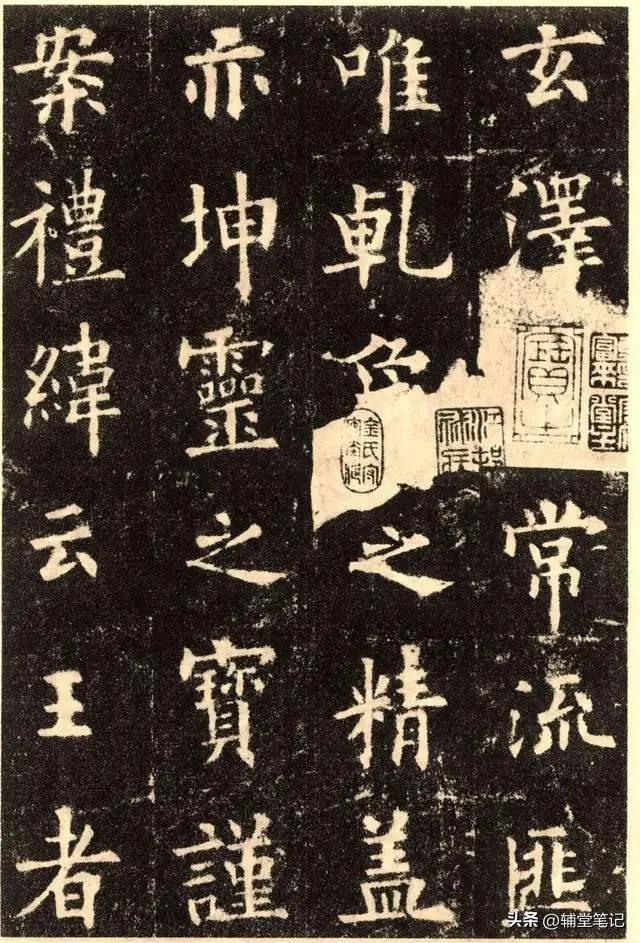 玄澤常流匪
唯乹之精蓋
亦坤靈之寶謹
案禮緯云王者
头条 @辅堂笔记